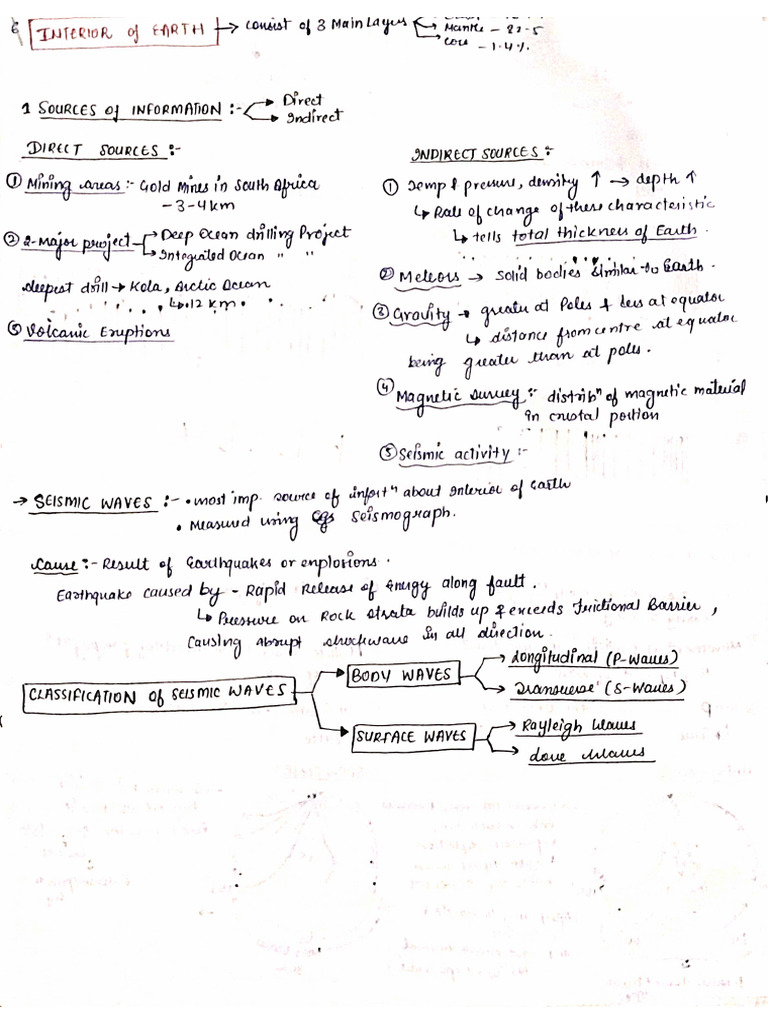 INTERIOR of EARTH → consist of 3 Main Layers
Mantle - 82.5
Core - 1.4%
1 SOURCES of INFORMATION :- Direct
Indirect
DIRECT SOURCES :-
① Mining areas :- Gold Mines in South Africa
- 3-4 km
② 2-Major project - Deep Ocean drilling Project
Integrated Ocean " "
deepest drill → Kola, Arctic Ocean
↳ 12 km
③ Volcanic Eruptions
INDIRECT SOURCES :-
① Temp & pressure, density ↑ → depth ↑
↳ Rate of change of these characteristic
↳ tells total thickness of Earth.
② Meteors → solid bodies similar to Earth.
③ Gravity → greater at Poles & less at equator
↳ distance from centre at equator
being greater than at poles.
④ Magnetic survey :- distribⁿ of magnetic material
in crustal portion
⑤ Seismic activity :-
→ SEISMIC WAVES :- • most imp. source of about Interior of Earth
• Measured using Seismograph.
Cause :- Result of Earthquakes or explosions.
Earthquake caused by - Rapid Release of Energy along fault.
↳ Pressure on Rock Strata builds up & exceeds frictional Barrier,
Causing abrupt shockwave in all direction.
CLASSIFICATION of SEISMIC WAVES
BODY WAVES → Longitudinal (P-Waves)
→ Transverse (S-Waves)
SURFACE WAVES → Rayleigh Waves
→ Love Waves